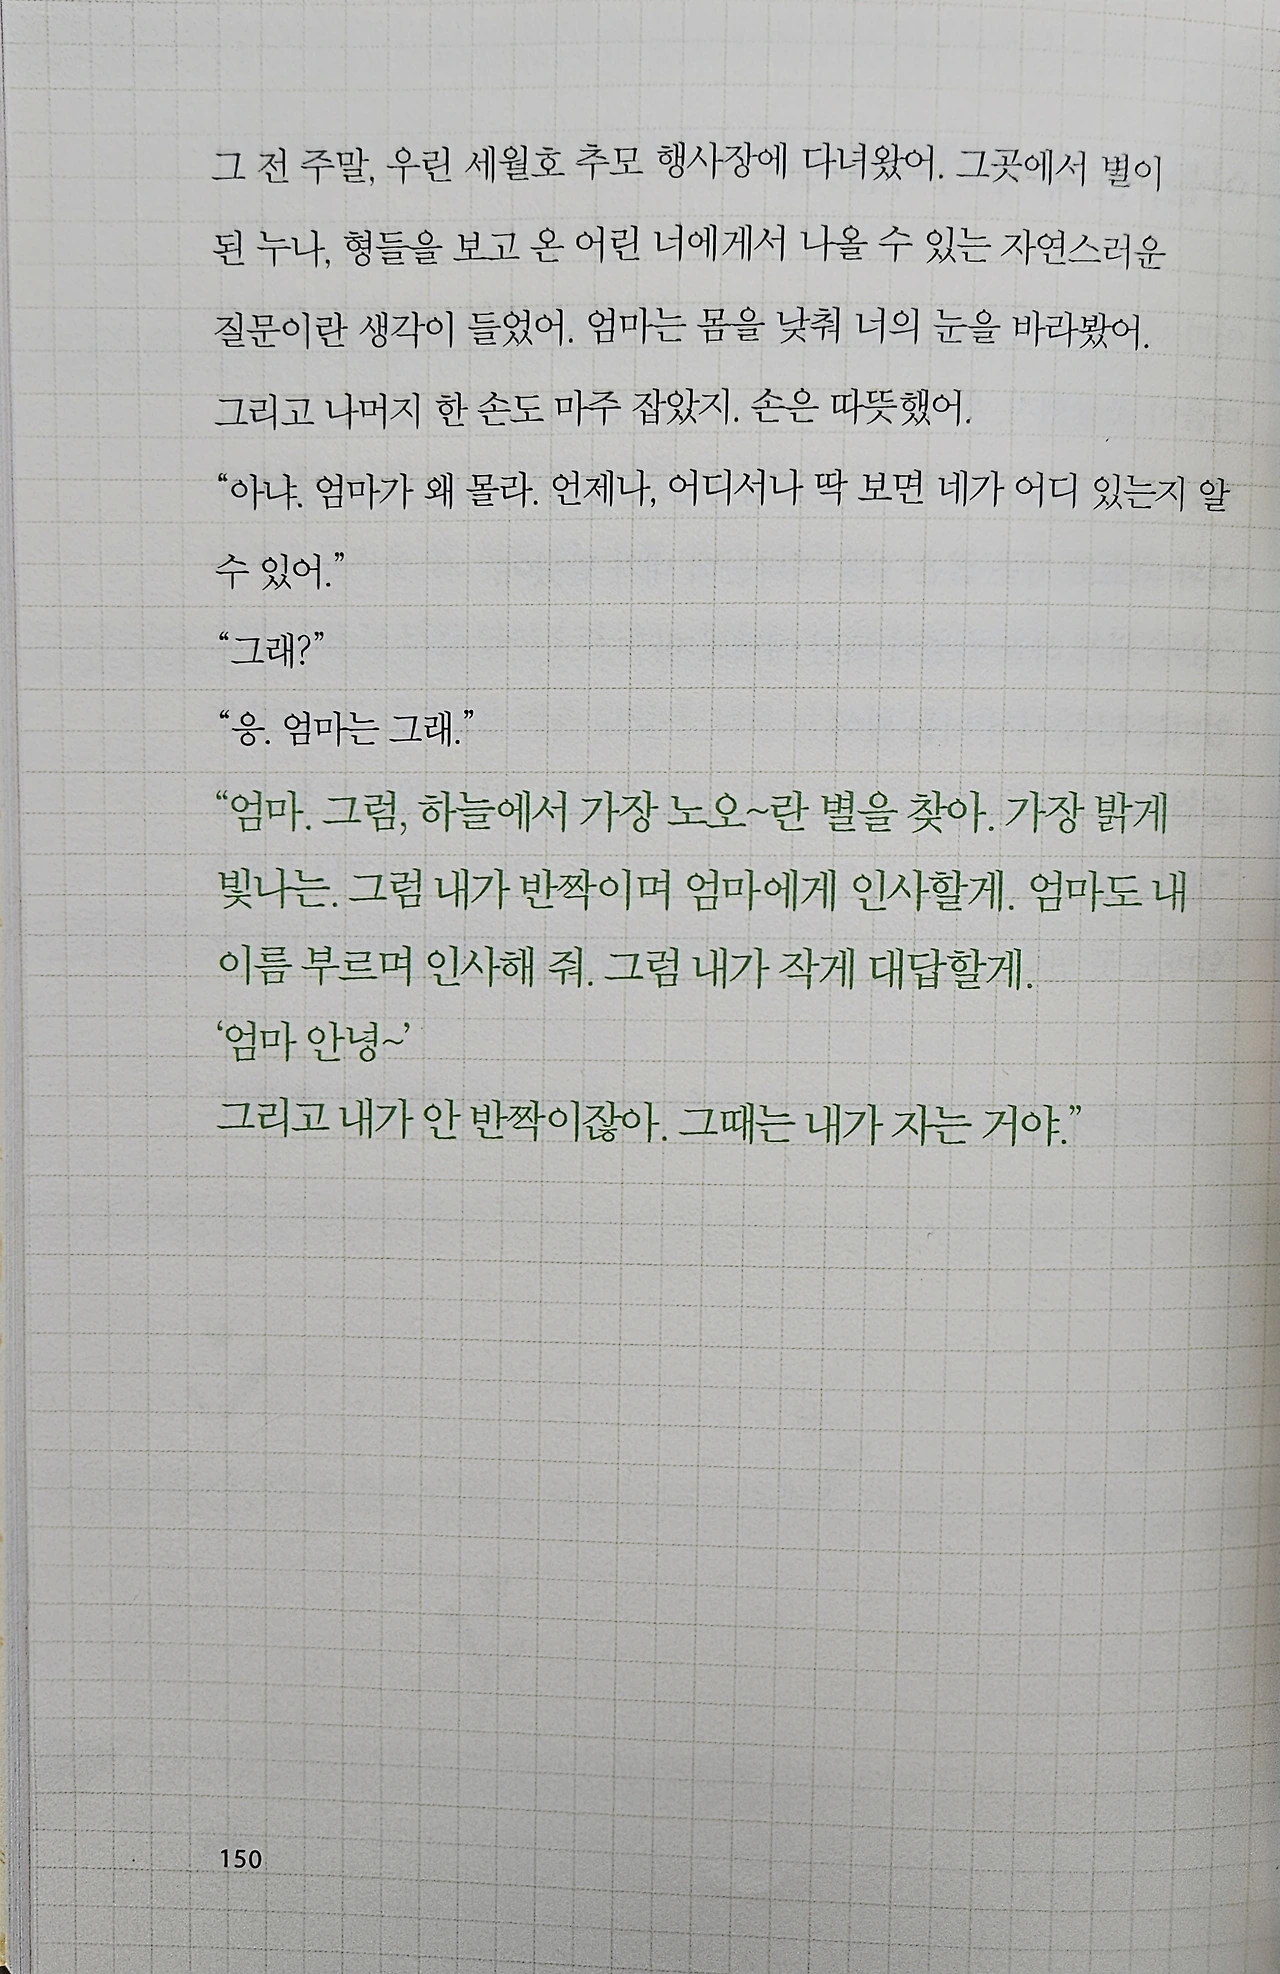 그 전 주말, 우린 세월호 추모 행사장에 다녀왔어. 그곳에서 별이
된 누나, 형들을 보고 온 어린 너에게서 나올 수 있는 자연스러운
질문이란 생각이 들었어. 엄마는 몸을 낮춰 너의 눈을 바라봤어.
그리고 나머지 한 손도 마주 잡았지. 손은 따뜻했어.
“아냐. 엄마가 왜 몰라. 언제나, 어디서나 딱 보면 네가 어디 있는지 알
수 있어.”
“그래?”
“응. 엄마는 그래.”
“엄마. 그럼, 하늘에서 가장 노오~란 별을 찾아. 가장 밝게
빛나는. 그럼 내가 반짝이며 엄마에게 인사할게. 엄마도 내
이름 부르며 인사해 줘. 그럼 내가 작게 대답할게.
‘엄마 안녕~’
그리고 내가 안 반짝이잖아. 그때는 내가 자는 거야.”
150